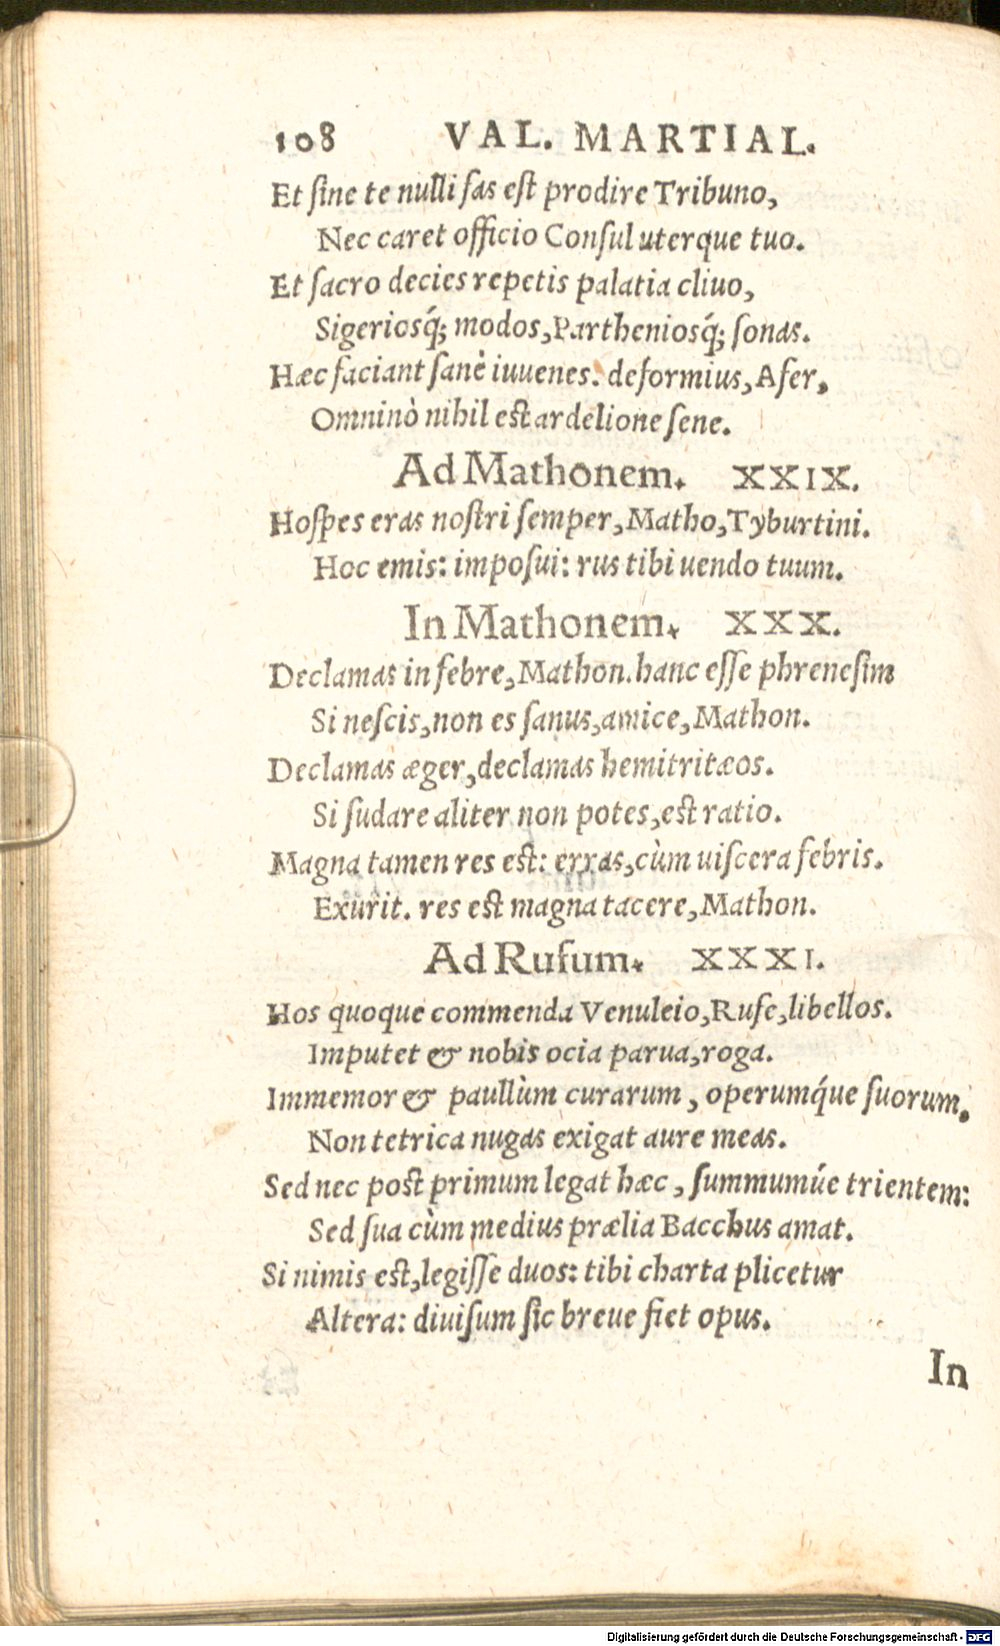 108 VAL. MARTIAL.
Et ſine te nulli fas eſt prodire Tribuno,
Nec caret officio Conſul uterque tuo.
Et ſacro decies repetis palatia cliuo,
Sigeriosq́; modos, Partheniosq́; ſonas.
Hæc faciant ſanè iuuenes. deformius, Afer,
Omninò nihil eſt ardelione ſene.
Ad Mathonem. XXIX.
Hoſpes eras noſtri ſemper, Matho, Tyburtini.
Hoc emis: impoſui: rus tibi uendo tuum.
In Mathonem. XXX.
Declamas in febre, Mathon. hanc eſſe phreneſim
Si neſcis, non es ſanus, amice, Mathon.
Declamas æger, declamas hemitritæos.
Si ſudare aliter non potes, eſt ratio.
Magna tamen res eſt: erras, cùm uiſcera febris.
Exurit. res eſt magna tacere, Mathon.
Ad Rufum. XXXI.
Hos quoque commenda Venuleio, Rufe, libellos.
Imputet & nobis ocia parua, roga.
Immemor & paullùm curarum, operumq́ue ſuorum,
Non tetrica nugas exigat aure meas.
Sed nec poſt primum legat hæc, ſummumúe trientem:
Sed ſua cùm medius prælia Bacchus amat.
Si nimis eſt, legiſſe duos: tibi charta plicetur
Altera: diuiſum ſic breue fiet opus.
In
Digitalisierung gefördert durch die Deutsche Forschungsgemeinschaft - DFG